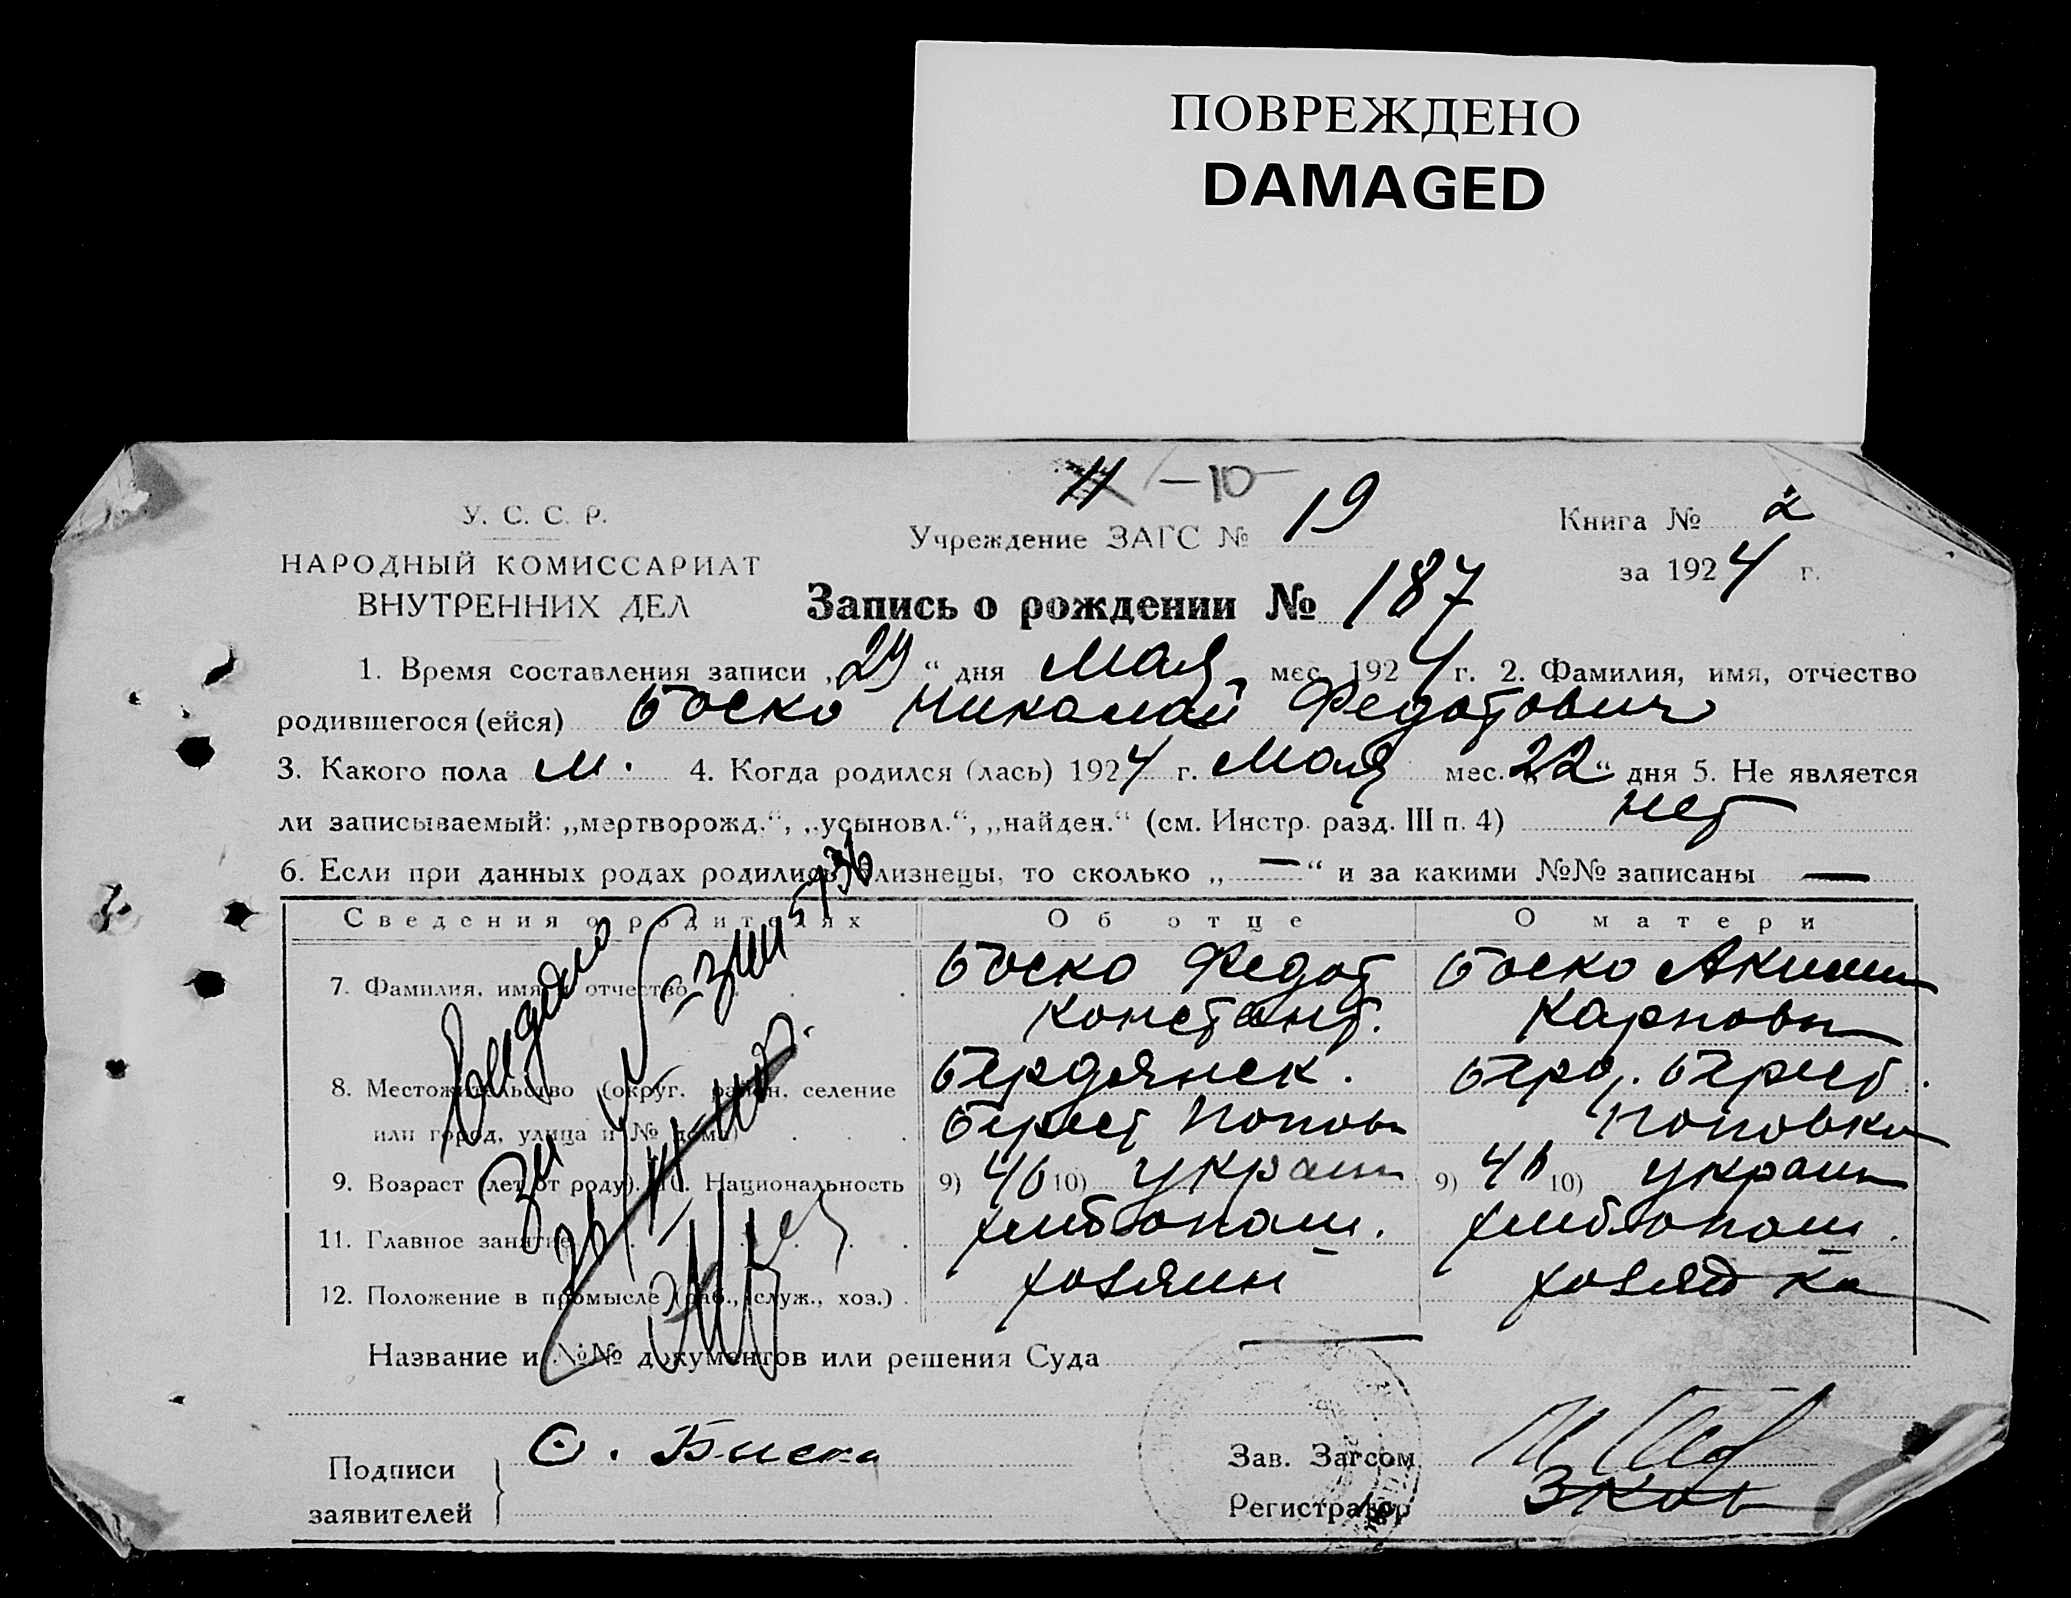 ПОВРЕЖДЕНО
DAMAGED
11 -10-
У. С. С. Р.
Учреждение ЗАГС № 19
Книга № 2
НАРОДНЫЙ КОМИССАРИАТ
за 1924 г.
ВНУТРЕННИХ ДЕЛ
Запись о рождении № 187
1. Время составления записи „29“ дня мая мес. 1924 г. 2. Фамилия, имя, отчество
родившегося (ейся) Боско Николай Федотович
3. Какого пола м. 4. Когда родился (лась) 1924 г. Мая мес. „22“ дня 5. Не является
ли записываемый: „мертворожд.“, „усыновл.“, „найден.“ (см. Инстр. разд. III п. 4) нет
6. Если при данных родах родились близнецы, то сколько „—“ и за какими №№ записаны —
Сведения о родителях Об отце О матери
7. Фамилия, имя и отчество Боско Федот Боско Акилин
Констант. Карповн
8. Местожительство (округ, район, селение Бердянск. Берд. Берест.
или город, улица и № дома) Берест Попов Поповка
9. Возраст (лет от роду). 10. Национальность 9) 46 10) украин 9) 46 10) украин
11. Главное занятие хлебопаш. хлебопаш.
12. Положение в промысле (раб., служ., хоз.) хозяин хозяйка
Название и №№ документов или решения Суда
Подписи
заявителей
Зав. Загсом
Регистратор